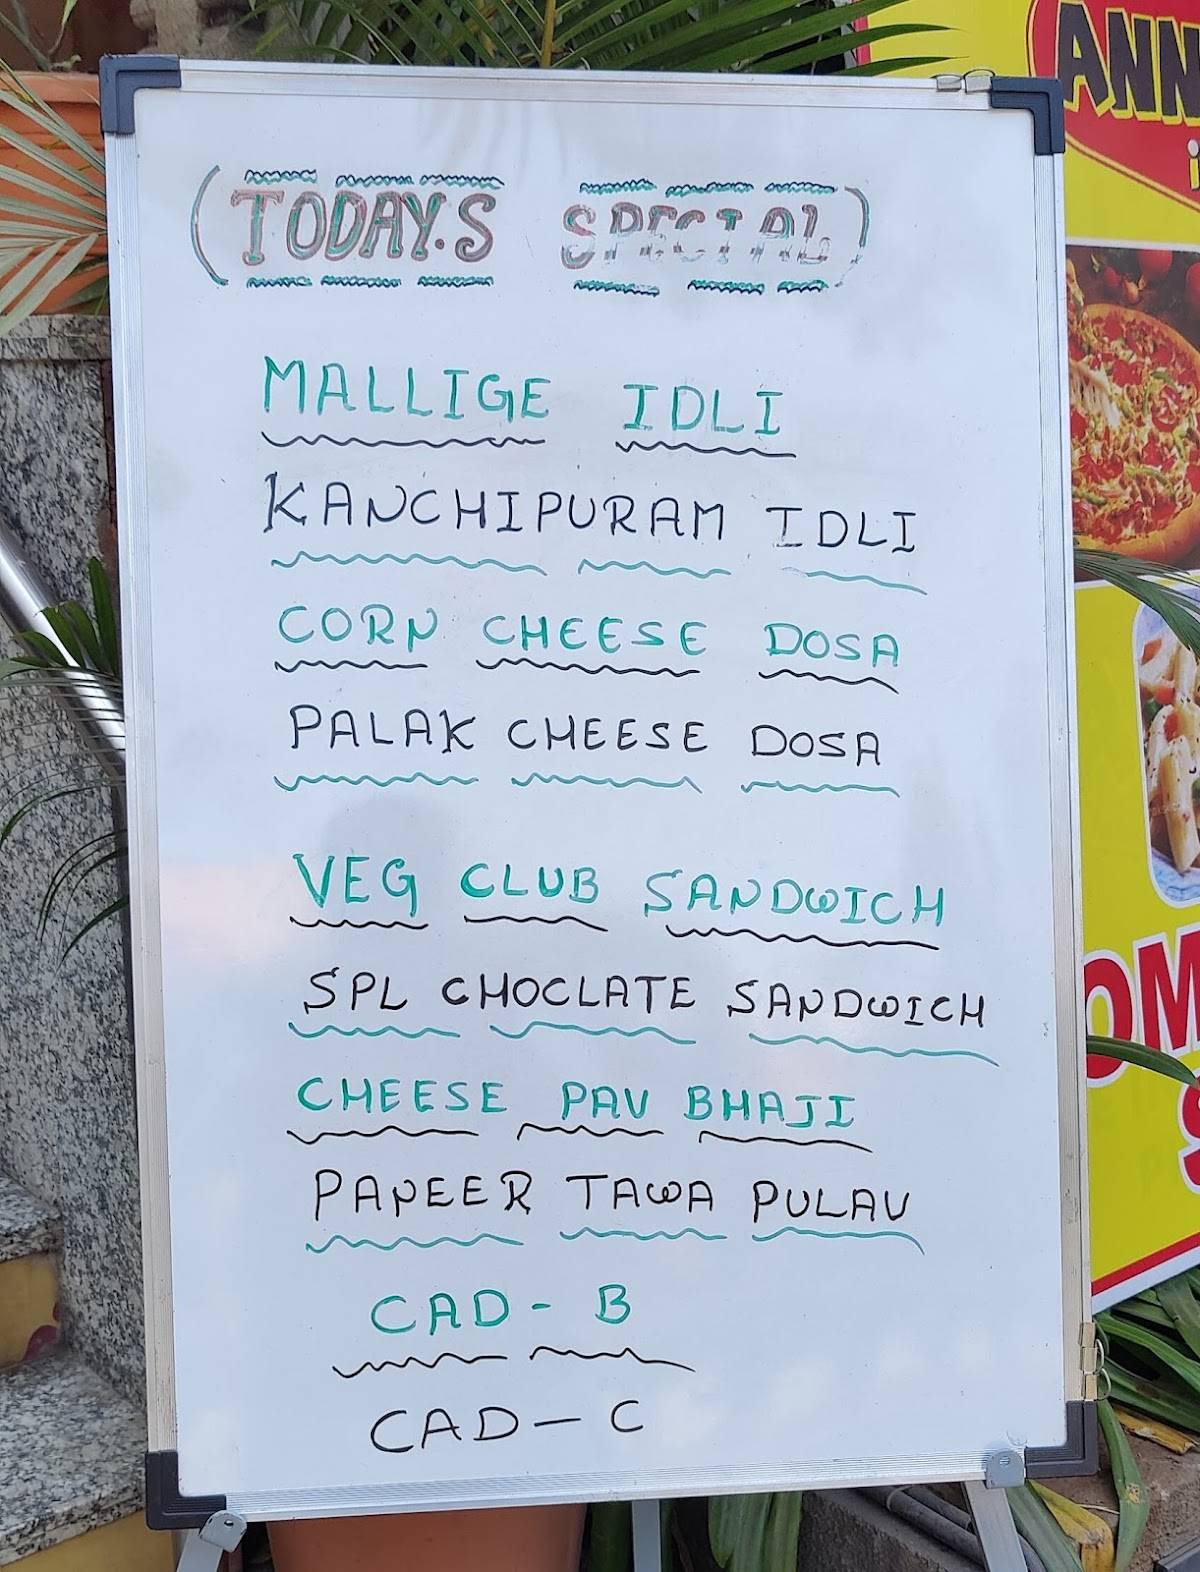 (TODAY.S SPECIAL)
MALLIGE IDLI
KANCHIPURAM IDLI
CORN CHEESE DOSA
PALAK CHEESE DOSA
VEG CLUB SANDWICH
SPL CHOCLATE SANDWICH
CHEESE PAV BHAJI
PANEER TAWA PULAV
CAD - B
CAD - C
ANN
OM
S